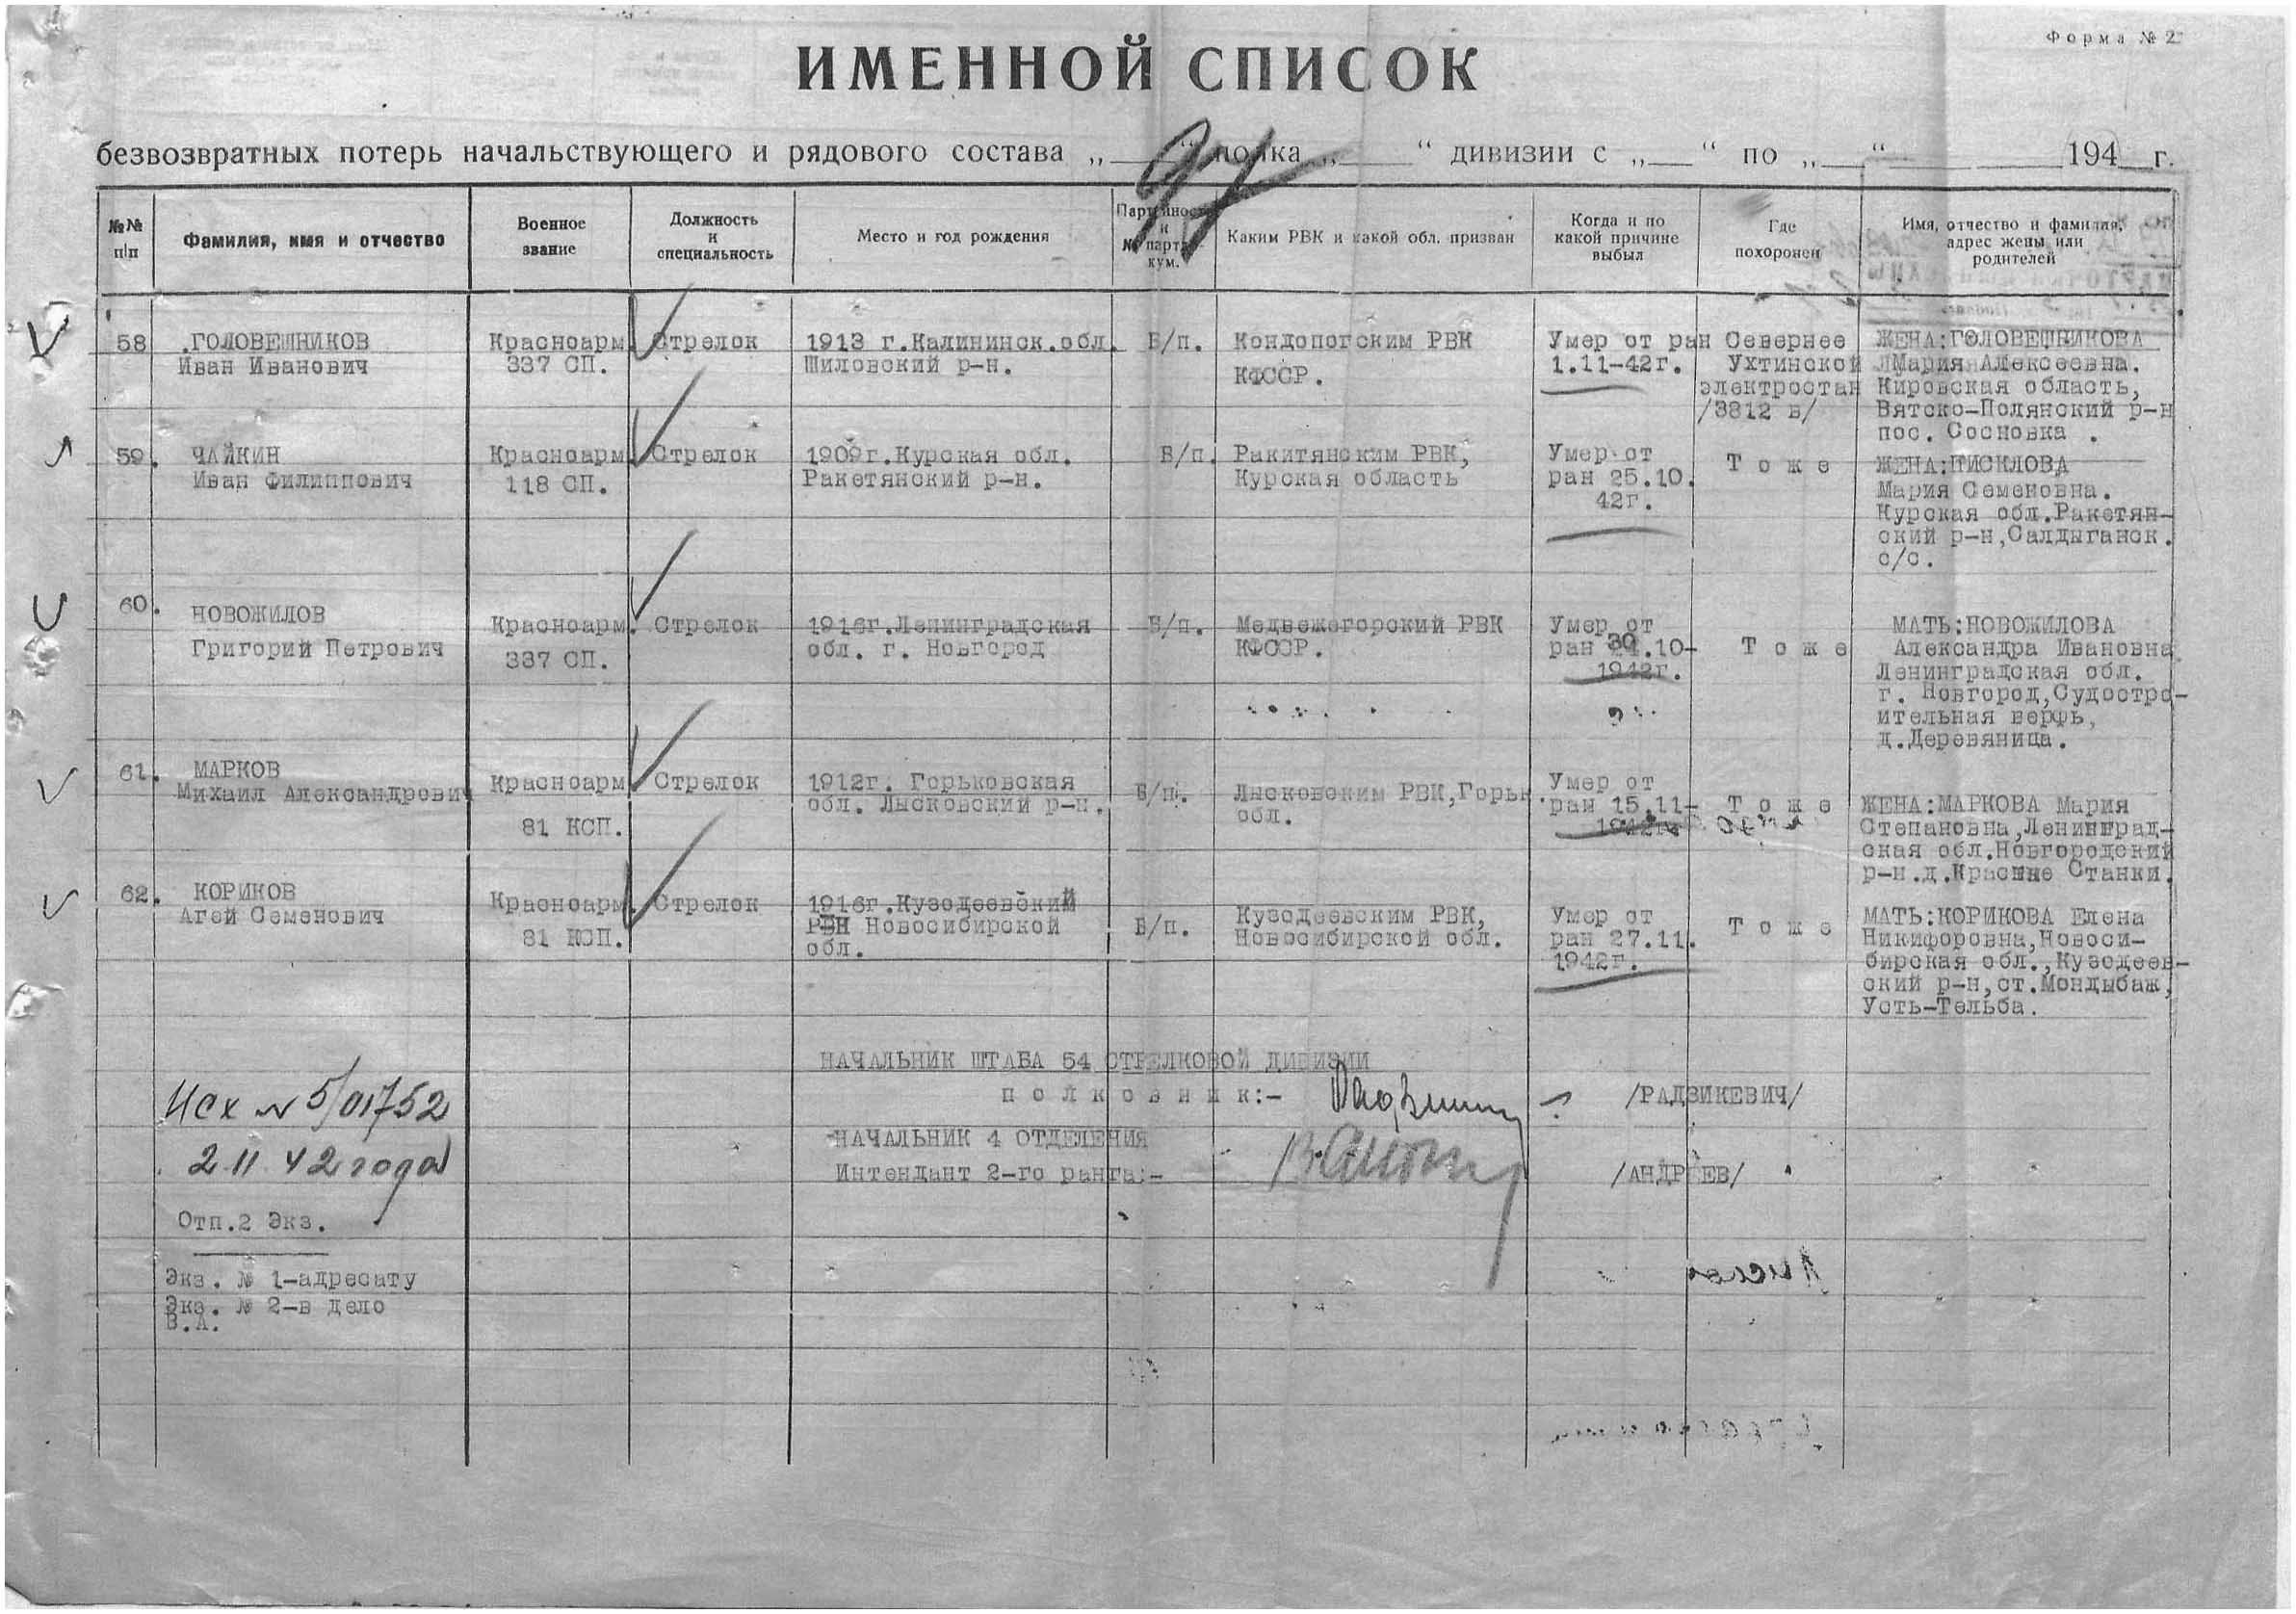 Форма № 2
ИМЕННОЙ СПИСОК
безвозвратных потерь начальствующего и рядового состава „___“ полка „___“ дивизии с „___“ по „___“ 194__г.
№№ п|п
Фамилия, имя и отчество
Военное звание
Должность и специальность
Место и год рождения
Партийность и № парт. кум.
Каким РВК и какой обл. призван
Когда и по какой причине выбыл
Где похоронен
Имя, отчество и фамилия, адрес жены или родителей
58 ГОЛОВЕШНИКОВ
Иван Иванович
Красноарм.
337 СП.
Стрелок
1913 г.Калининск.обл.
Шиловский р-н.
Б/п.
Кондопогским РВК
КФССР.
Умер от ран
1.11-42г.
Севернее
Ухтинской
электростан
/3812 в/
ЖЕНА:ГОЛОВЕШНИКОВА
Мария Алексеевна.
Кировская область,
Вятско-Полянский р-н
пос. Сосновка .
59. ЧАЙКИН
Иван Филиппович
Красноарм.
118 СП.
Стрелок
1909г.Курская обл.
Ракетянский р-н.
Б/п.
Ракитянским РВК,
Курская область
Умер от
ран 25.10.
42г.
Т о ж е
ЖЕНА:ПИСКЛОВА
Мария Семеновна.
Курская обл.Ракетян-
ский р-н,Салдыганск.
с/с.
60. НОВОЖИЛОВ
Григорий Петрович
Красноарм.
337 СП.
Стрелок
1916г.Ленинградская
обл. г. Новгород
Б/п.
Медвежегорский РВК
КФССР.
Умер от
ран 30.10-
1942г.
Т о ж е
МАТЬ:НОВОЖИЛОВА
Александра Ивановна
Ленинградская обл.
г. Новгород,Судостро-
ительная верфь,
д.Деревяница.
61. МАРКОВ
Михаил Александрович
Красноарм
81 КСП.
Стрелок
1912г. Горьковская
обл. Лысковский р-н.
Б/п.
Лысковским РВК,Горьк.
обл.
Умер от
ран 15.11-
1942г.
Т о ж е
ЖЕНА:МАРКОВА Мария
Степановна,Ленинград-
ская обл.Новгородский
р-н.д.Красные Станки.
62. КОРИКОВ
Агей Семенович
Красноарм.
81 КСП.
Стрелок
1916г.Кузедеевский
РВН Новосибирской
обл.
Б/п.
Кузедеевским РВК,
Новосибирской обл.
Умер от
ран 27.11.
1942г.
Т о ж е
МАТЬ:КОРИКОВА Елена
Никифоровна,Новоси-
бирская обл.,Кузедеев-
ский р-н,ст.Мондыбаж,
Усть-Тельба.
НАЧАЛЬНИК ШТАБА 54 СТРЕЛКОВОЙ ДИВИЗИИ
п о л к о в н и к:- /РАДЗИКЕВИЧ/
НАЧАЛЬНИК 4 ОТДЕЛЕНИЯ
Интендант 2-го ранга:- /АНДРЕЕВ/
Исх № 5/01752
2 11 42 года
Отп.2 Экз.
Экз. № 1-адресату
Экз. № 2-в дело
В.А.